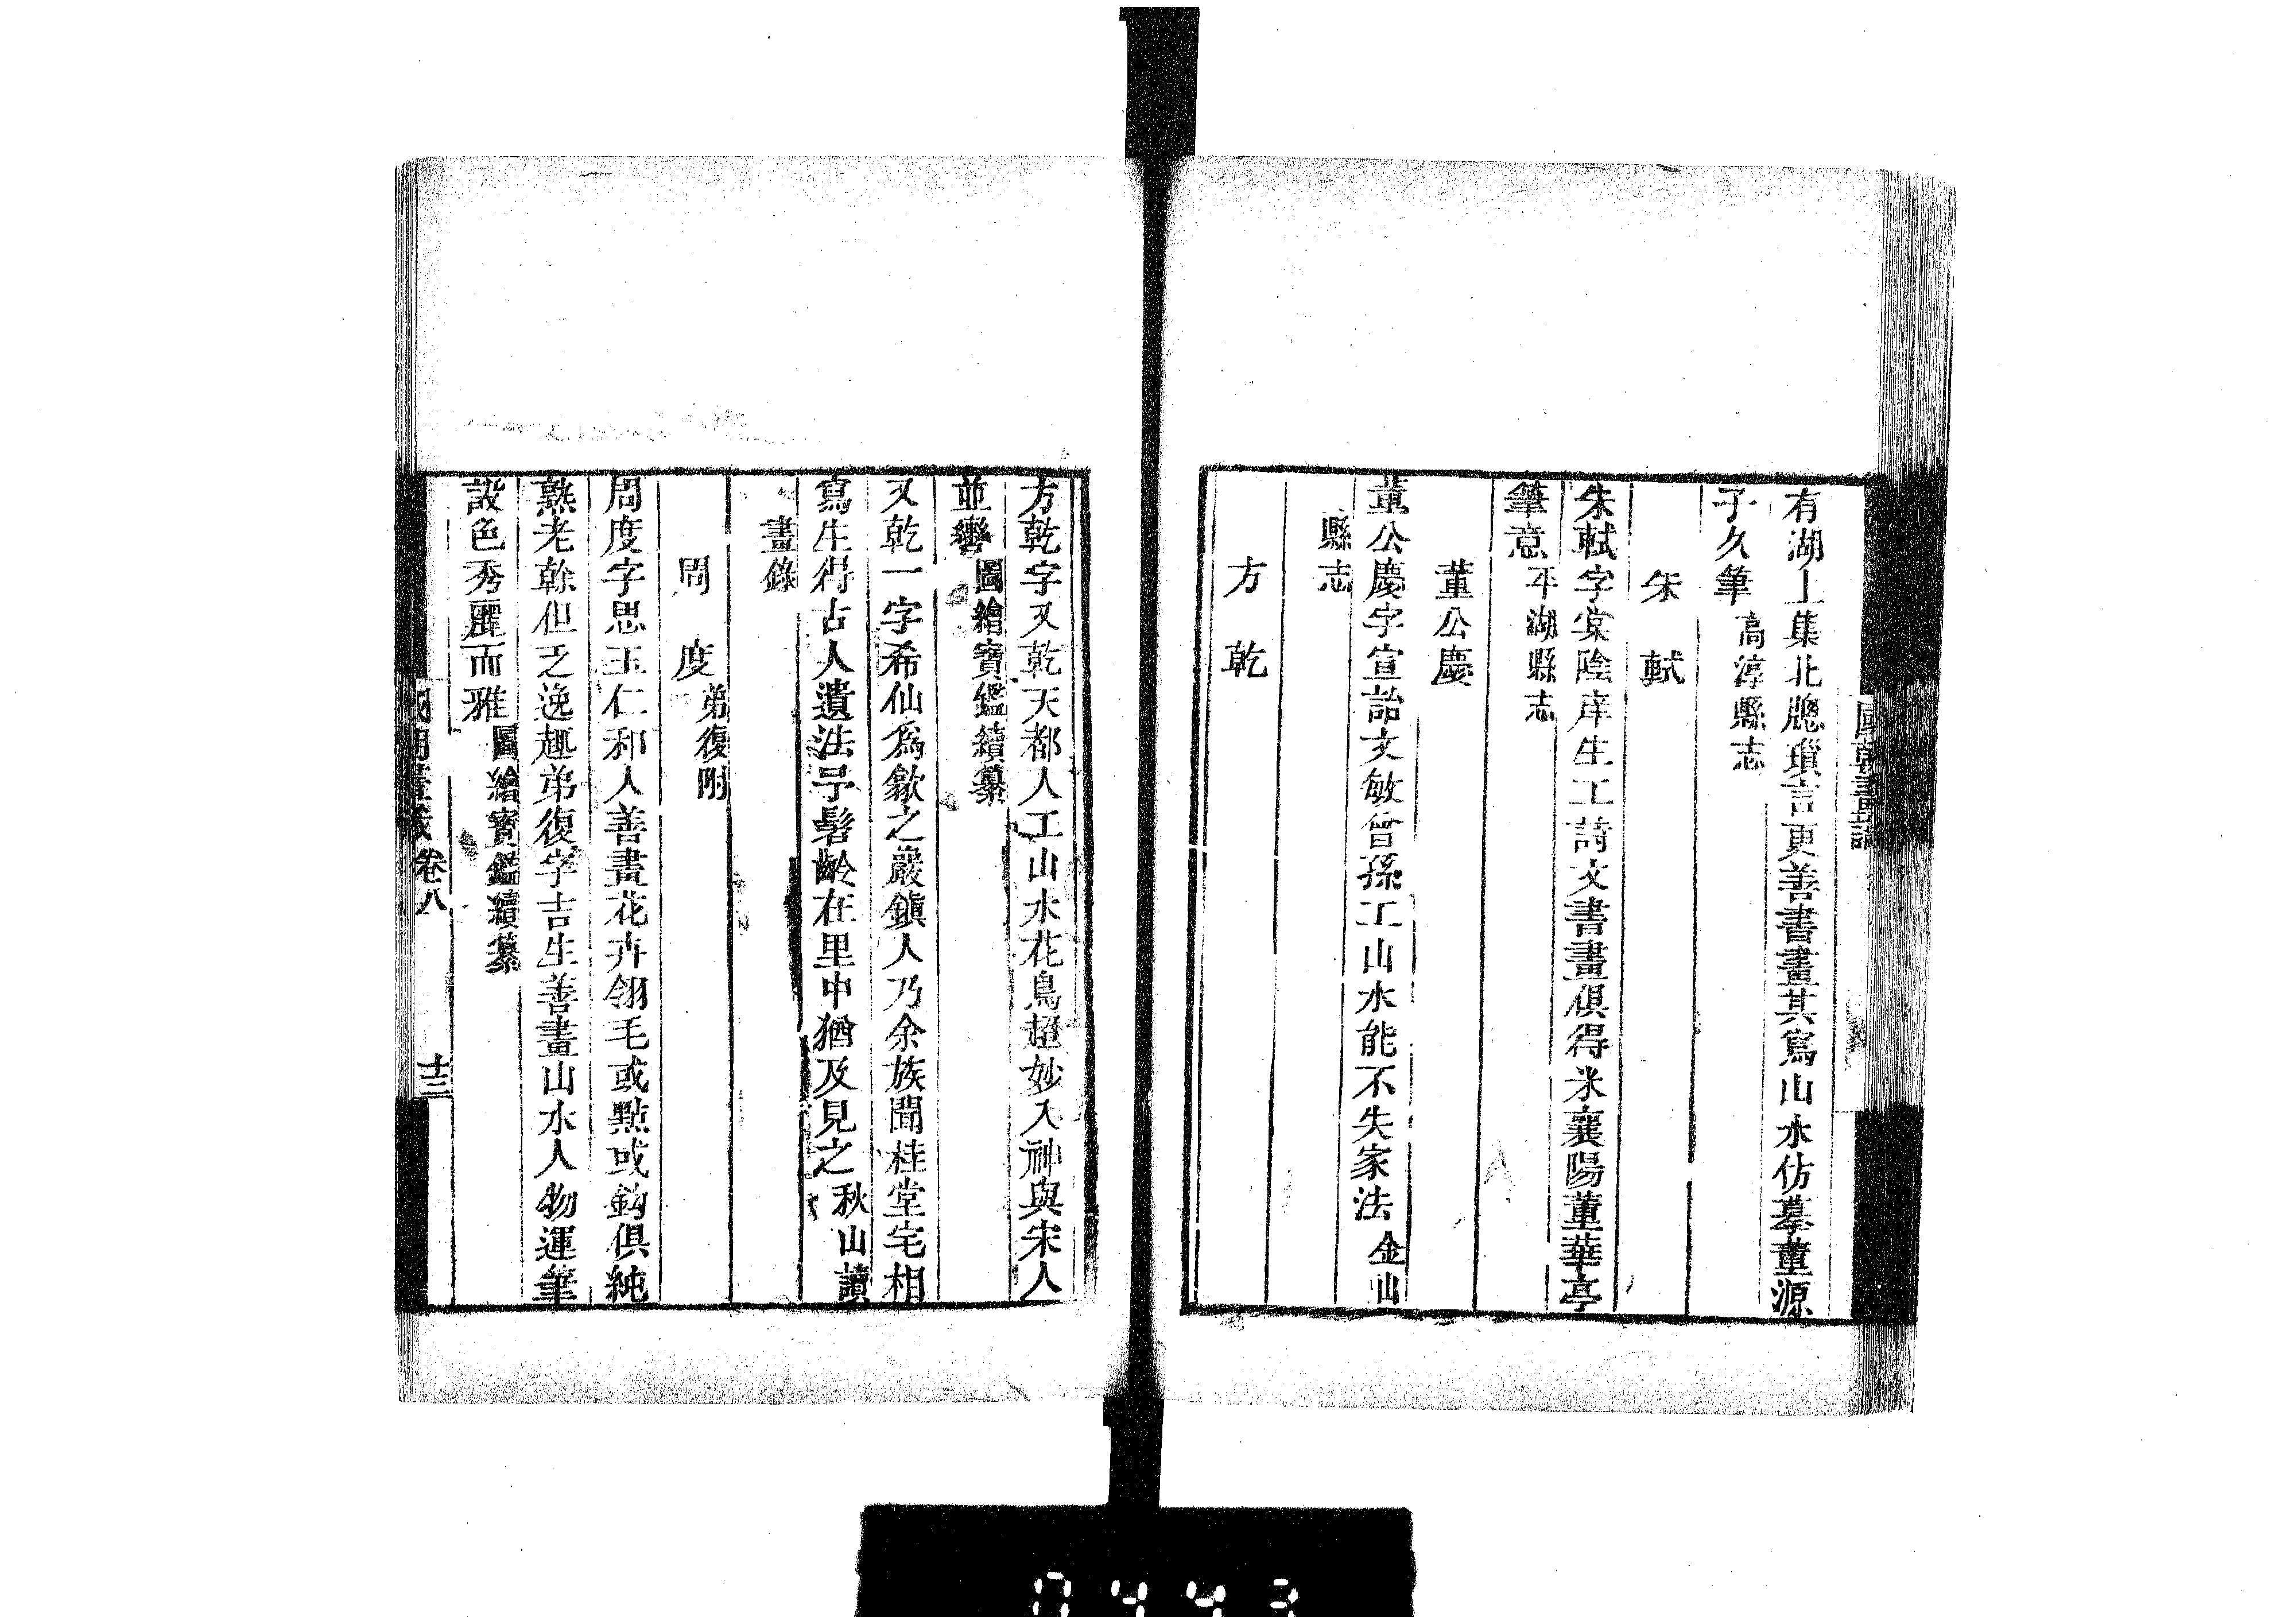 有湖上集北牕瑣言更善書畫其寫山水仿摹董源
子久筆高淳縣志
朱軾
朱軾字棠陰庠生工詩文書畫俱得米襄陽董華亭
筆意平湖縣志
董公慶
董公慶字宣詒文敏曾孫工山水能不失家法金山
縣志
方乾
方乾字又乾天都人工山水花鳥超妙入神與宋人
並轡圖繪寶鑑續纂
又乾一字希仙為歙之巖鎮人乃余族聞桂堂宅相
寫生得古人遺法予髫齡在里中猶及見之秋山讀
畫錄
周度弟復附
周度字思玉仁和人善畫花卉翎毛或點或鉤俱純
熟老幹但乏逸趣弟復字吉生善畫山水人物運筆
設色秀麗而雅圖繪寶鑑續纂
國朝畫識 卷八 十三
0443